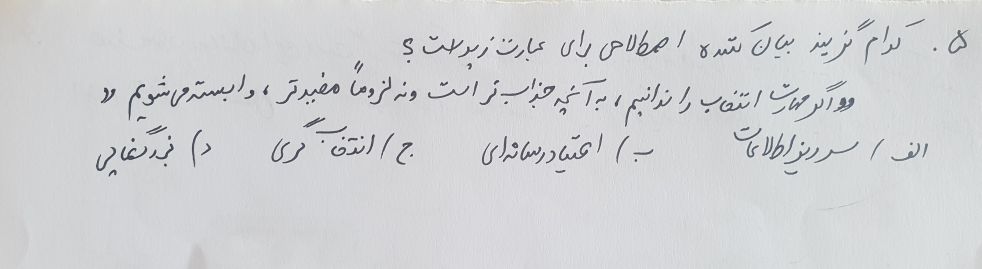 ۵. کدام گزینه بیان کننده اصطلاحی برای عبارت زیر است؟
«اگر مهارت انتخاب را ندانیم، به آنچه جذاب تر است و نه لزوماً مفیدتر، وابسته می شویم»
الف) سرریز اطلاعات ب) اعتیاد رسانه ای ج) انتخاب گری د) برگشایی